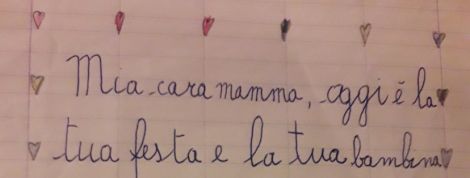 Mia cara mamma, oggi è la
tua festa e la tua bambina